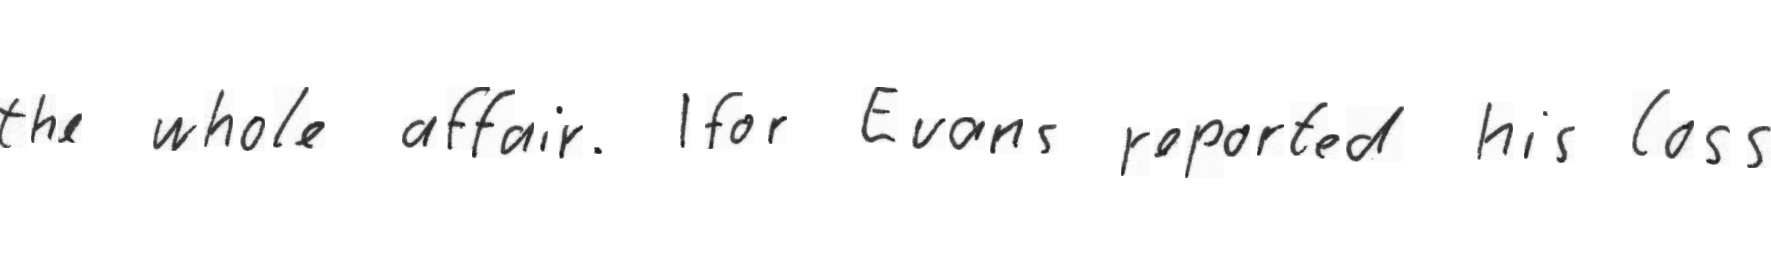 the whole affair. Ifor Evans reported his loss